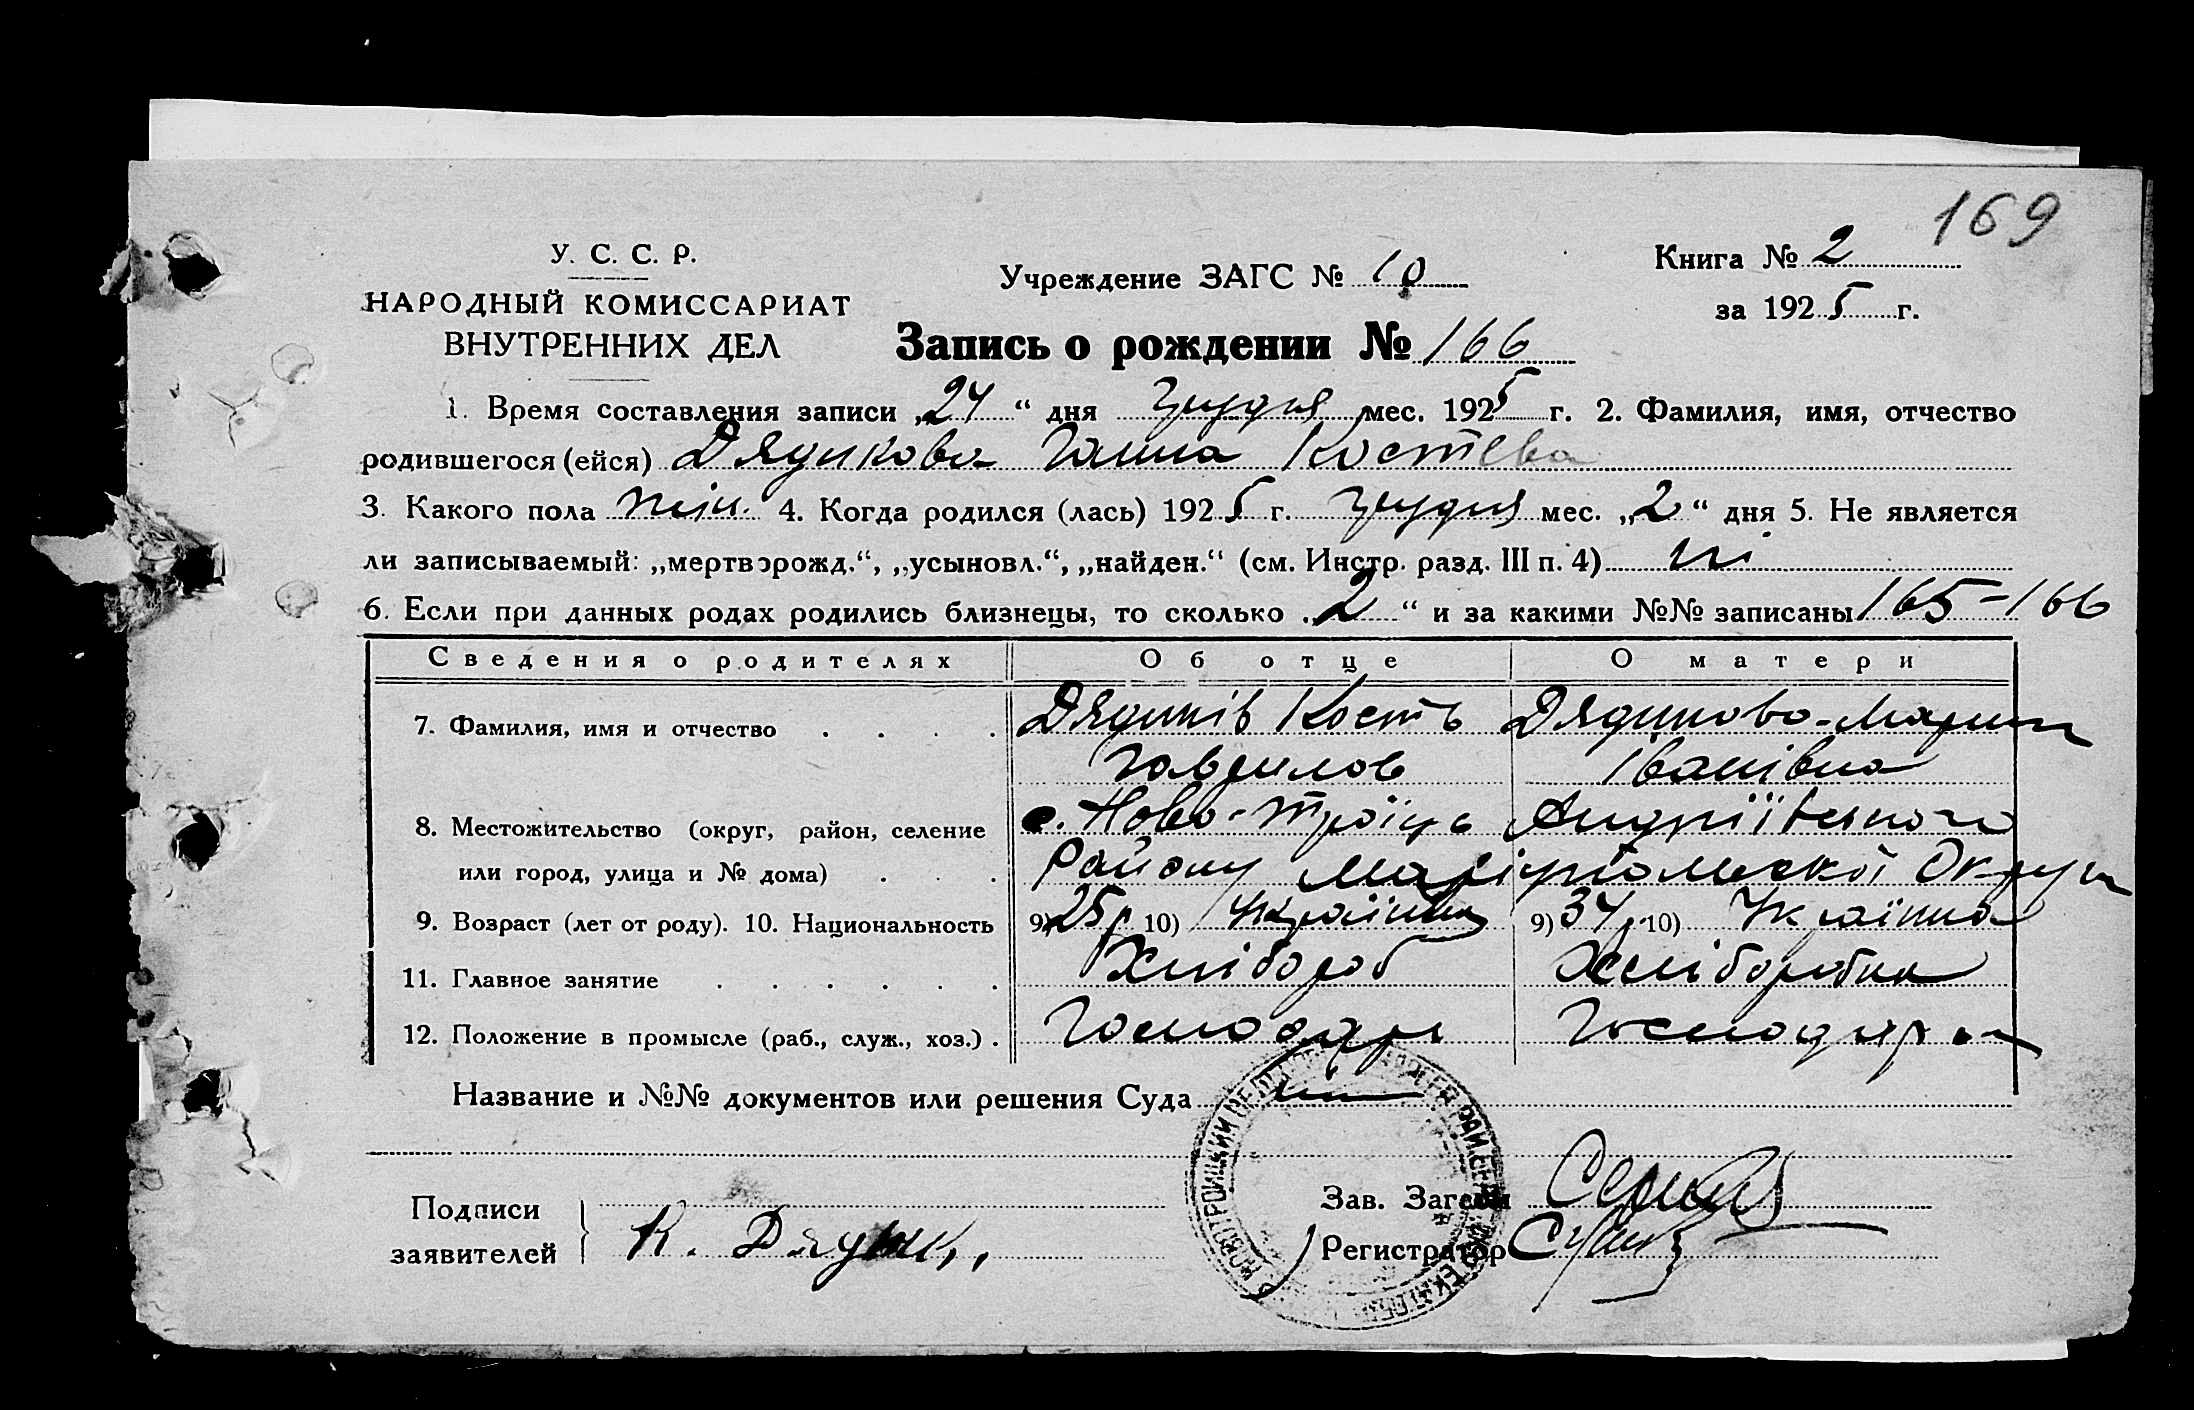 169
У. С. С. Р.
Учреждение ЗАГС № 10
Книга № 2
НАРОДНЫЙ КОМИССАРИАТ
за 1925 г.
ВНУТРЕННИХ ДЕЛ
Запись о рождении № 166
1. Время составления записи „24“ дня грудня мес. 1925 г. 2. Фамилия, имя, отчество
родившегося (ейся) Дядикова Галина Костева
3. Какого пола жін. 4. Когда родился (лась) 1925 г. грудня мес. „2“ дня 5. Не является
ли записываемый: „мертворожд.“, „усыновл.“, „найден.“ (см. Инстр. разд. III п. 4) ні
6. Если при данных родах родились близнецы, то сколько „2“ и за какими №№ записаны 165-166
Сведения о родителях Об отце О матери
7. Фамилия, имя и отчество Дядиків Кость Дядикова Мария
Гаврилов Іванівна
8. Местожительство (округ, район, селение с. Ново-Троїцьке Андріївського
или город, улица и № дома) Району Маріупольскої Округи
9. Возраст (лет от роду). 10. Национальность 9) 25 р 10) Українець 9) 34 р. 10) Українка
11. Главное занятие Хлібороб Хліборобка
12. Положение в промысле (раб., служ., хоз.) Господарь Господарка
Название и №№ документов или решения Суда ні
Подписи
заявителей К.
Зав. Загсом
Регистратор